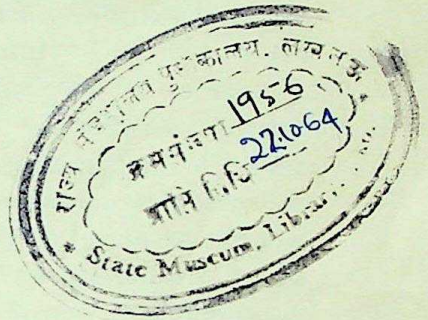 राज्य संग्रहालय पुस्तकालय, लखनऊ
क्रमसंख्या 1956
प्राप्ति तिथि 22.10.64
* State Museum, Library,